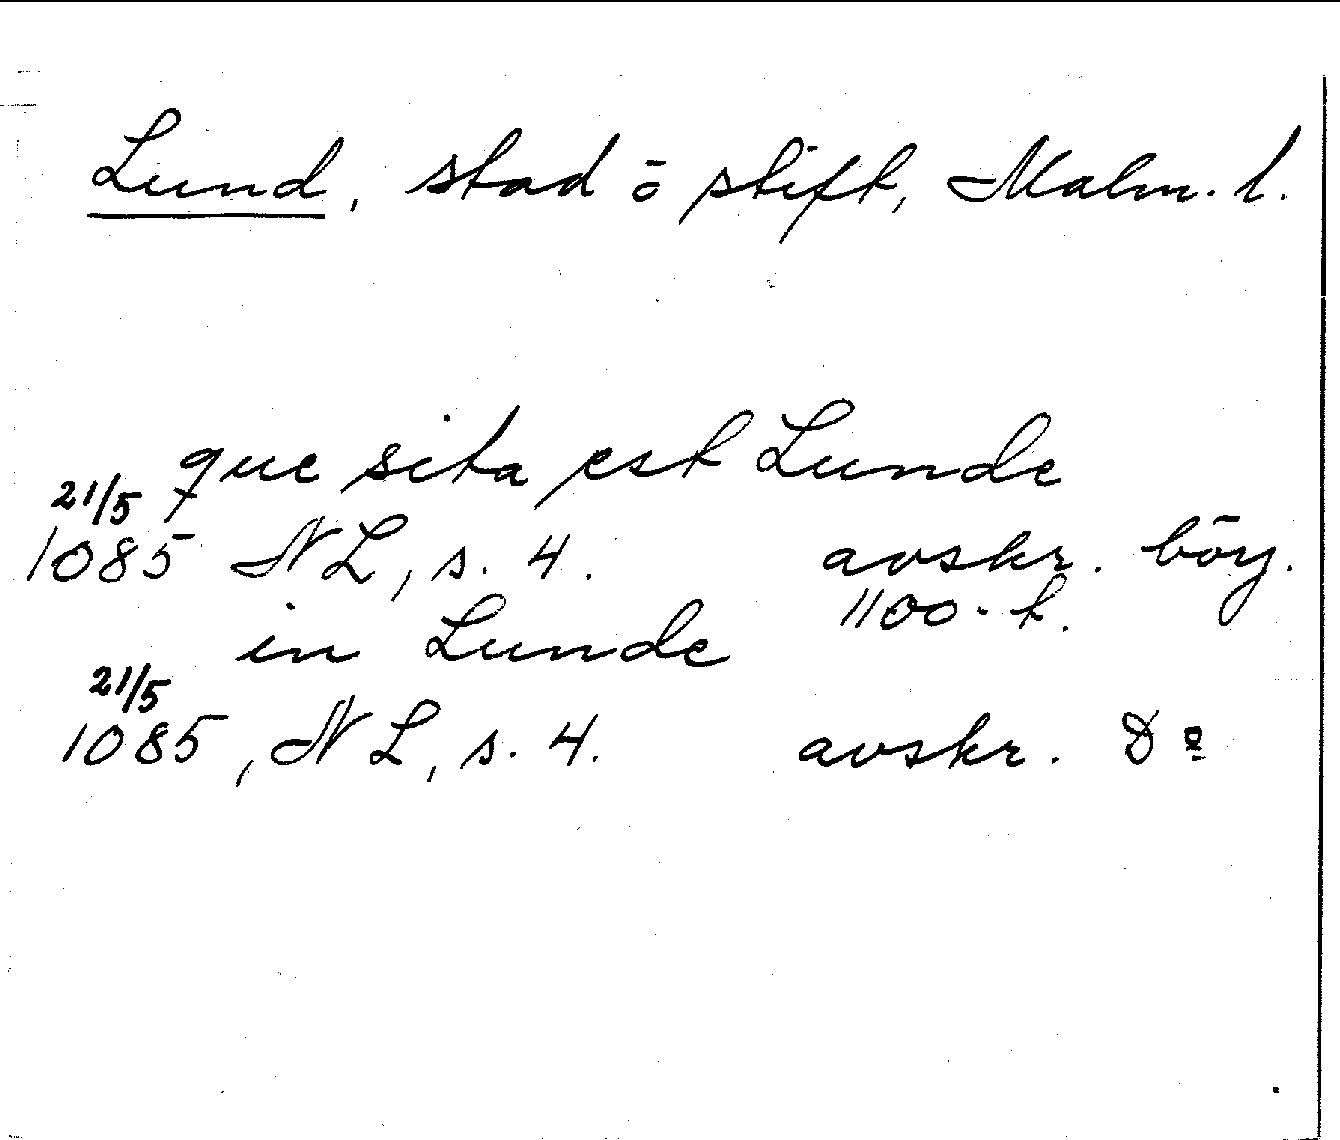 Lund, stad o stift, Malm. l.
que sita est Lunde
21/5
1085 NL, s. 4. avskr. börj.
1100-t.
in Lunde
21/5
1085, NL, s. 4. avskr. do